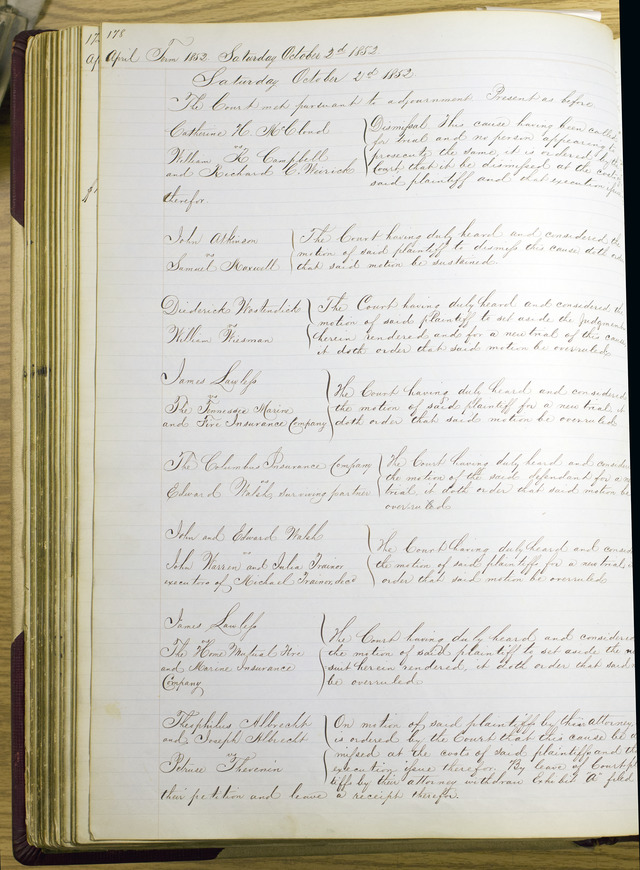 178
April Term 1852 Saturday October 2d 1852
Saturday October 2d 1852
The Court met pursuant to adjournment Present as before
Catherine H. McCloud
vs
William K Campbell
and Richard C. Weirick
Dismissal This cause having been called
for trial and no person appearing to
prosecute the same, it is ordered by the
Court that it be dismissed at the costs of
said plaintiff and that execution issue
therefor.
John Atkinson
vs
Samuel Maxwell
The Court having duly heard and considered the
motion of said plaintiff to dismiss this cause doth order
that said motion be sustained.
Diederick Wostendick
vs
William Wiesman
The Court having duly heard and considered the
motion of said Plaintiff to set aside the Judgment
herein rendered and for a new trial of this cause
it doth order that said motion be overruled
James Lawless
vs
The Tennessee Marine
and Fire Insurance Company
The Court having duly heard and considered
the motion of said plaintiff for a new trial it
doth order that said motion be overruled
The Columbus Insurance Company
vs
Edward Walsh surviving partner
The Court having duly heard and conside
the motion of the said defendant for a n
trial, it doth order that said motion be
overruled
John and Edward Walsh
vs
John Warren and Julia Trainor
executors of Michael Trainor, decd
The Court having duly heard and consid
the motion of said plaintiffs for a new trial,
order that said motion be overruled
James Lawless
vs
The Home Mutual Fire
and Marine Insurance
Company
The Court having duly heard and considered
the motion of said plaintiff to set aside the no
suit herein rendered, it doth order that said
be overruled
Theophilus Albrecht
and Joseph Albrecht
vs
Petruse Thevenin
On motion of said plaintiffs by their attorney
is ordered by the Court that this cause be d
missed at the costs of said plaintiffs and th
execution issue therefor. By leave of Court p
tiffs by their attorney withdraw Exhibit A filed
their petition and leave a receipt therefor.